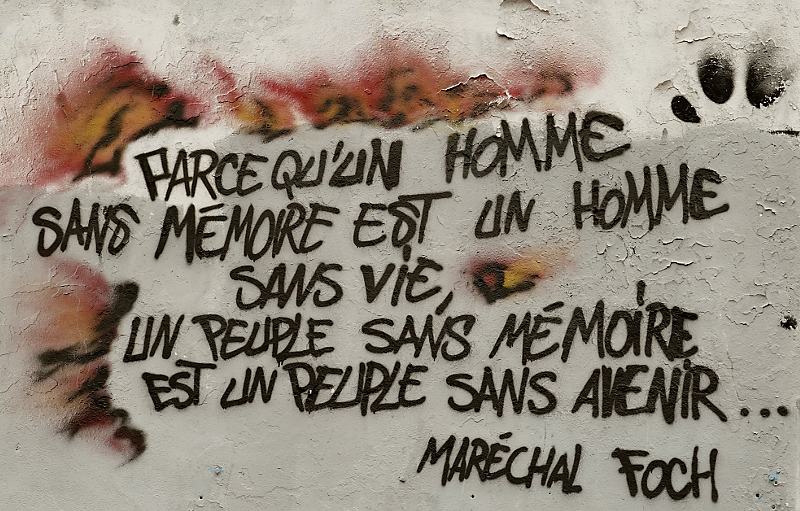 PARCE QU'UN HOMME
SANS MÉMOIRE EST UN HOMME
SANS VIE,
UN PEUPLE SANS MÉMOIRE
EST UN PEUPLE SANS AVENIR...
MARÉCHAL FOCH